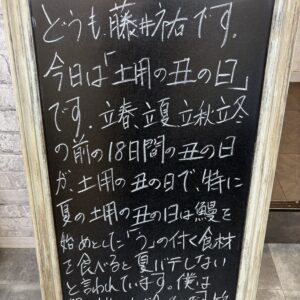 どうも藤井祐です。
今日は「土用の丑の日」
です。立春、立夏、立秋、立冬
の前の18日間の丑の日
が、土用の丑の日で、特に
夏の土用の丑の日は鰻を
始めとした「う」の付く食材
を食べると夏バテしない
と言われています。僕は